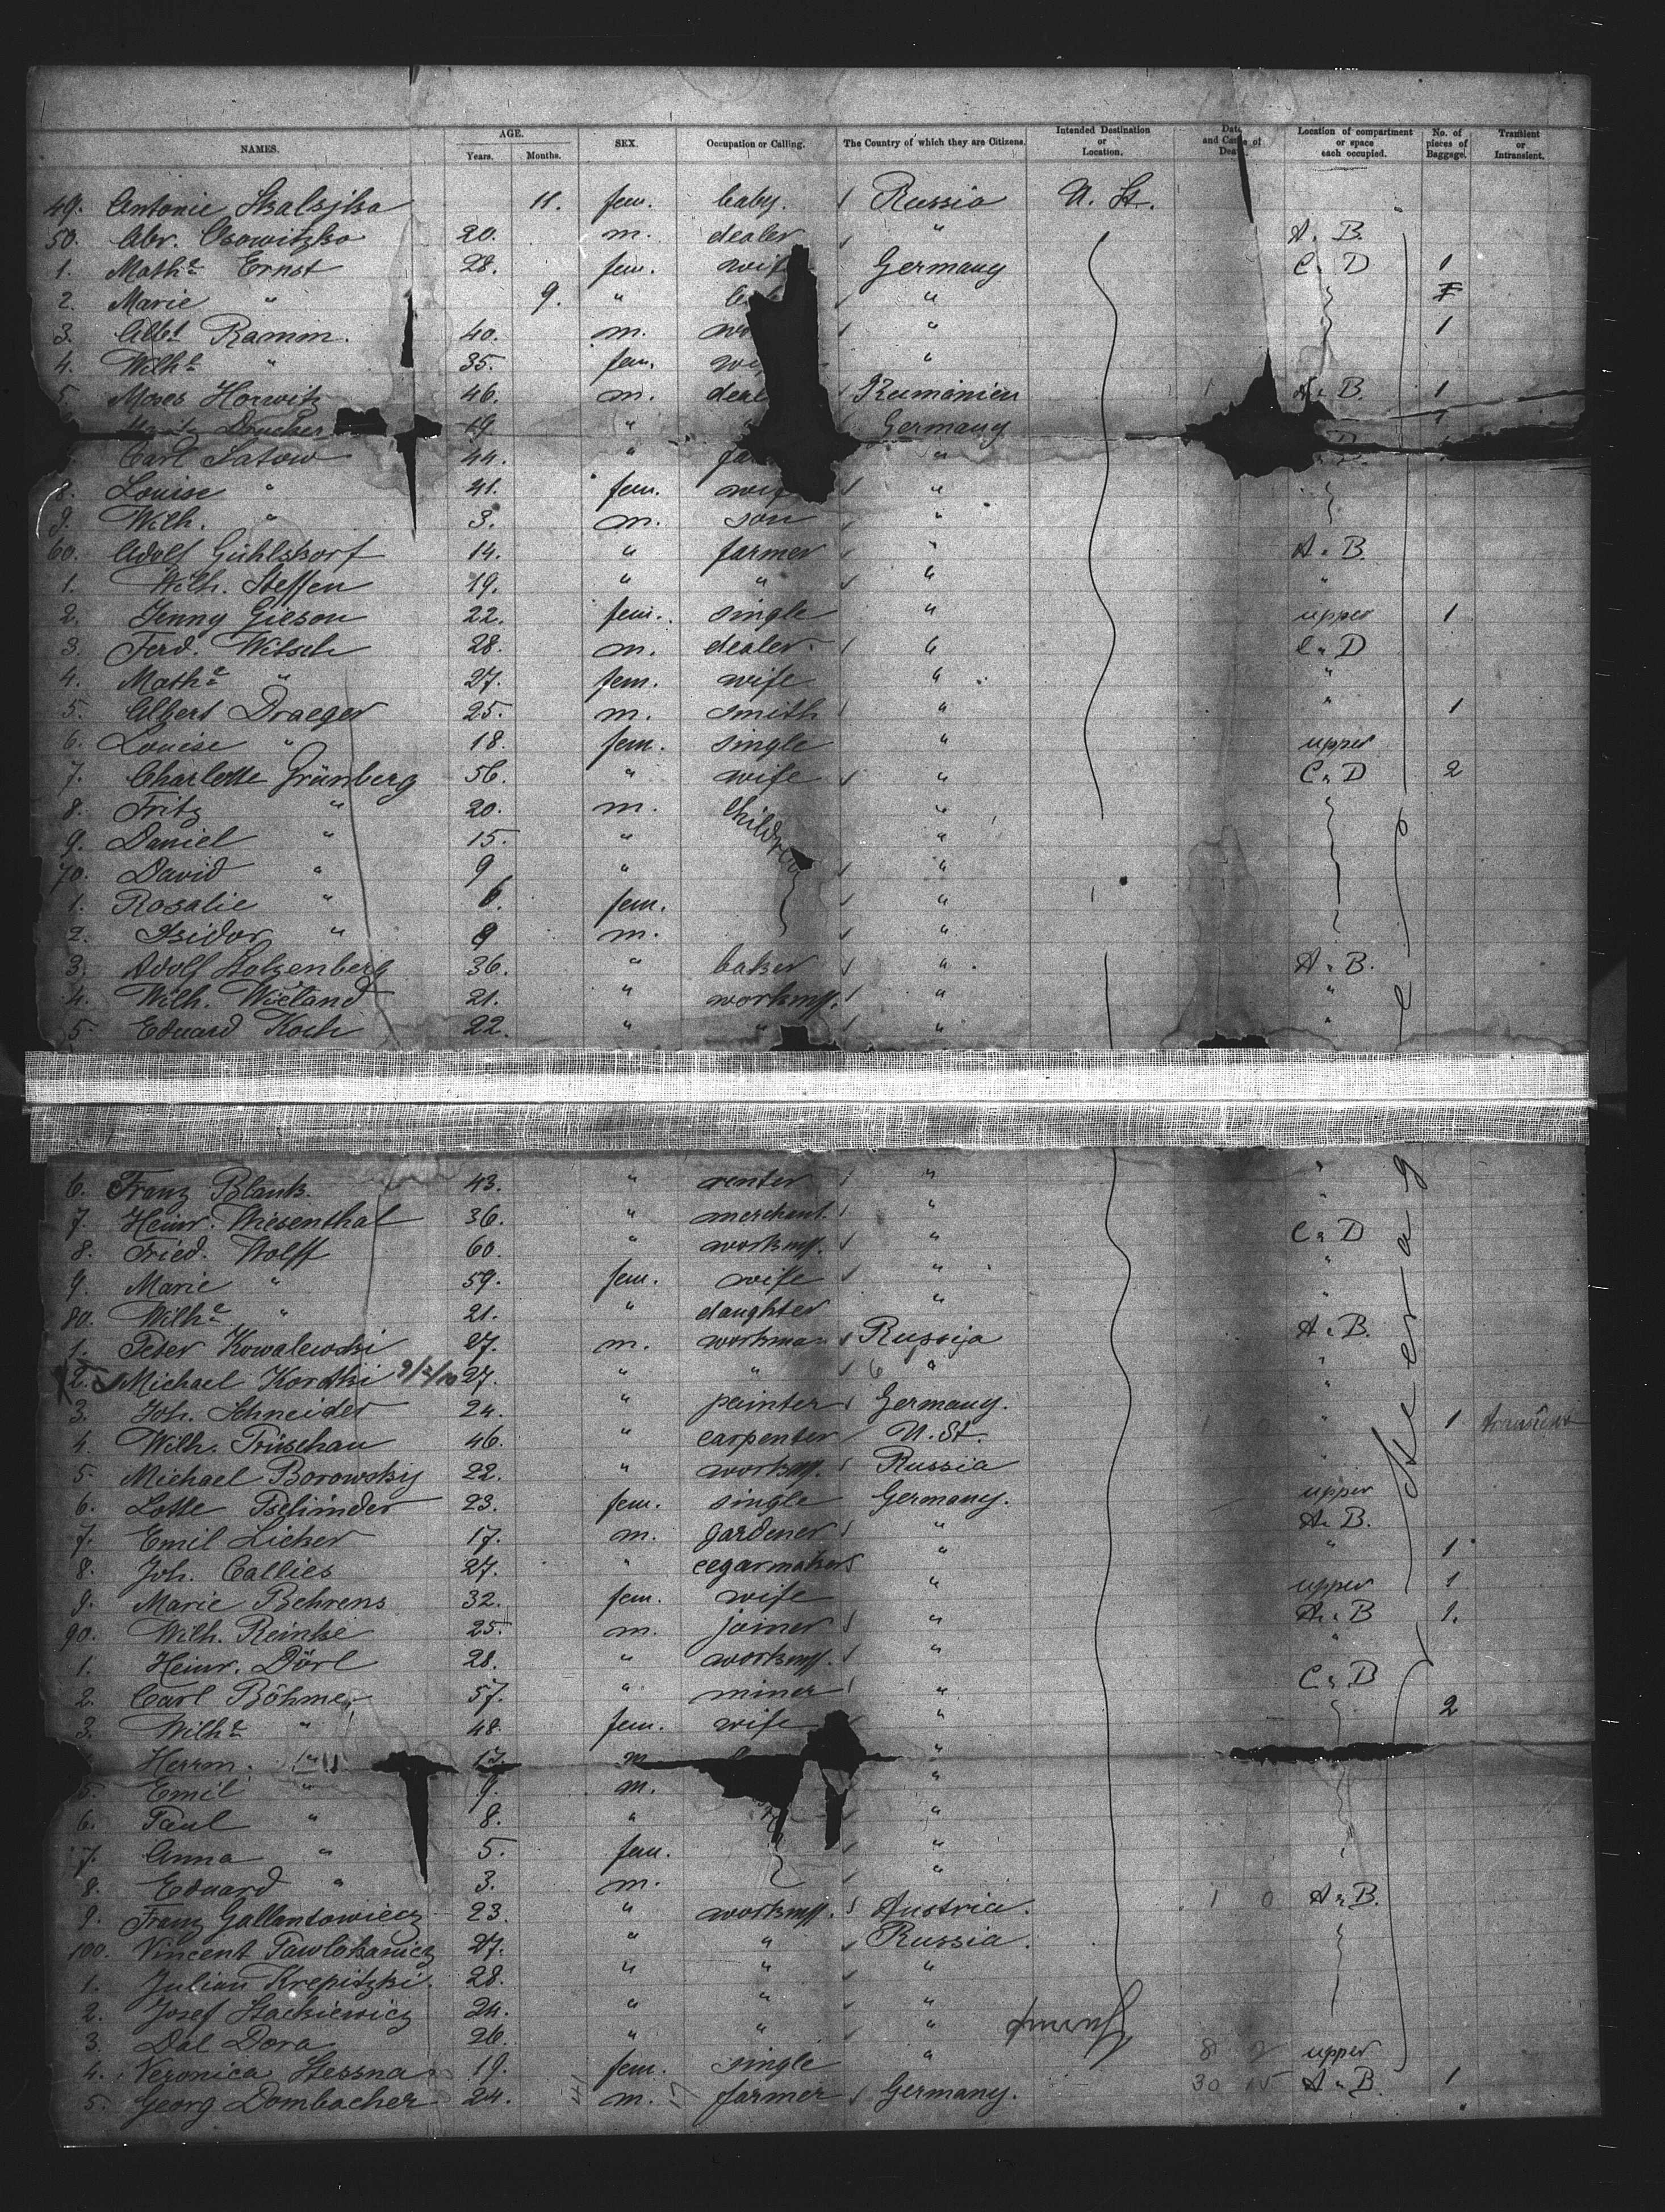 NAMES. AGE. Years. Months. SEX. Occupation or Calling. The Country of which they are Citizens. Intended Destination or Location. Date and Cause of Death. Location of compartment or space each occupied. No. of pieces of Baggage. Transient or Intransient.
49. Antonie 11. fem. baby. Russia U. St. "
50. Abr. 20. m. dealer " A. B.
1. Mathe Ernst 28. fem. Germany C. D 1
2. Marie " 9. " "
3. Albt Ramm. 40. m. " 1
4. Wilhe " 35. fem. "
5. Moses Horwitz 46. m. Rumänien A. B. 1
19. " Germany 1
Carl Satow 44. " "
8. Louise " 41. fem. "
9. Wilh. " 3. m. son "
60. Adolf Gühlstorf 14. " farmer " A. B.
1. Wilh. Steffen 19. " " " "
2. Jenny Gieson 22. fem. single " upper 1
3. Ferd. Witsch 28. m. dealer " C. D
4. Mathe " 27. fem. wife " "
5. Albert Draeger 25. m. smith " " 1
6. Louise " 18. fem. single " upper
7. Charlotte Grünberg 56. " wife " C. D 2
8. Fritz " 20. m. children "
9. Daniel " 15. " "
70. David " 9 " "
1. Rosalie " 6. fem. "
2. Isidor " m. "
3. Adolf Stolzenberg 36. " baker " A. B.
4. Wilh. Wieland 21. " " "
5. Eduard Koch 22. " " " "
6. Franz Blank. 43. " renter " "
7. Heinr. Wiesenthal 36. " merchant. " "
8. Fried. Wolff 60. " " C. D
9. Marie " 59. fem. wife " "
80. Wilhe " 21. " daughter " "
1. Peter Kowalewski 27. m. workman Russia A. B.
2. Michael 27. " " " "
3. Joh. Schneider 24. " painter Germany. "
4. Wilh. Trüschau 46. " carpenter U. St. " 1 transient
5. Michael Borowsky 22. " Russia "
6. Lotte 23. fem. single Germany. upper
7. Emil Licker 17. m. gardener " A. B.
8. Joh. Callies 27. " cegarmaker " " 1
9. Marie Behrens 32. fem. wife " upper 1
90. Wilh. Reinke 25. m. joiner " A. B 1.
1. Heinr. Dörl 28. " " "
2. Carl Böhme 57. " miner " C. D
3. Wilhe " 48. fem. wife " 2
Herrm. " 17. m "
5. Emil " 9. m. "
6. Paul " 8. " "
7. Anna " 5. fem. "
8. Eduard " 3. m. "
9. Franz Gallantowiecz 23. " Austria. 1 0 A. B.
100. Vincent 27. " " Russia.
1. Julian Krepitzki. 28. " " "
2. Josef Stackiewicz 24. " " "
3. Dal Dora 26. " " "
4. Veronica Stessna 19. fem. single " upper
5. Georg Dombacher 24. m. farmer Germany. 30 15 A. B. 1
Steerage